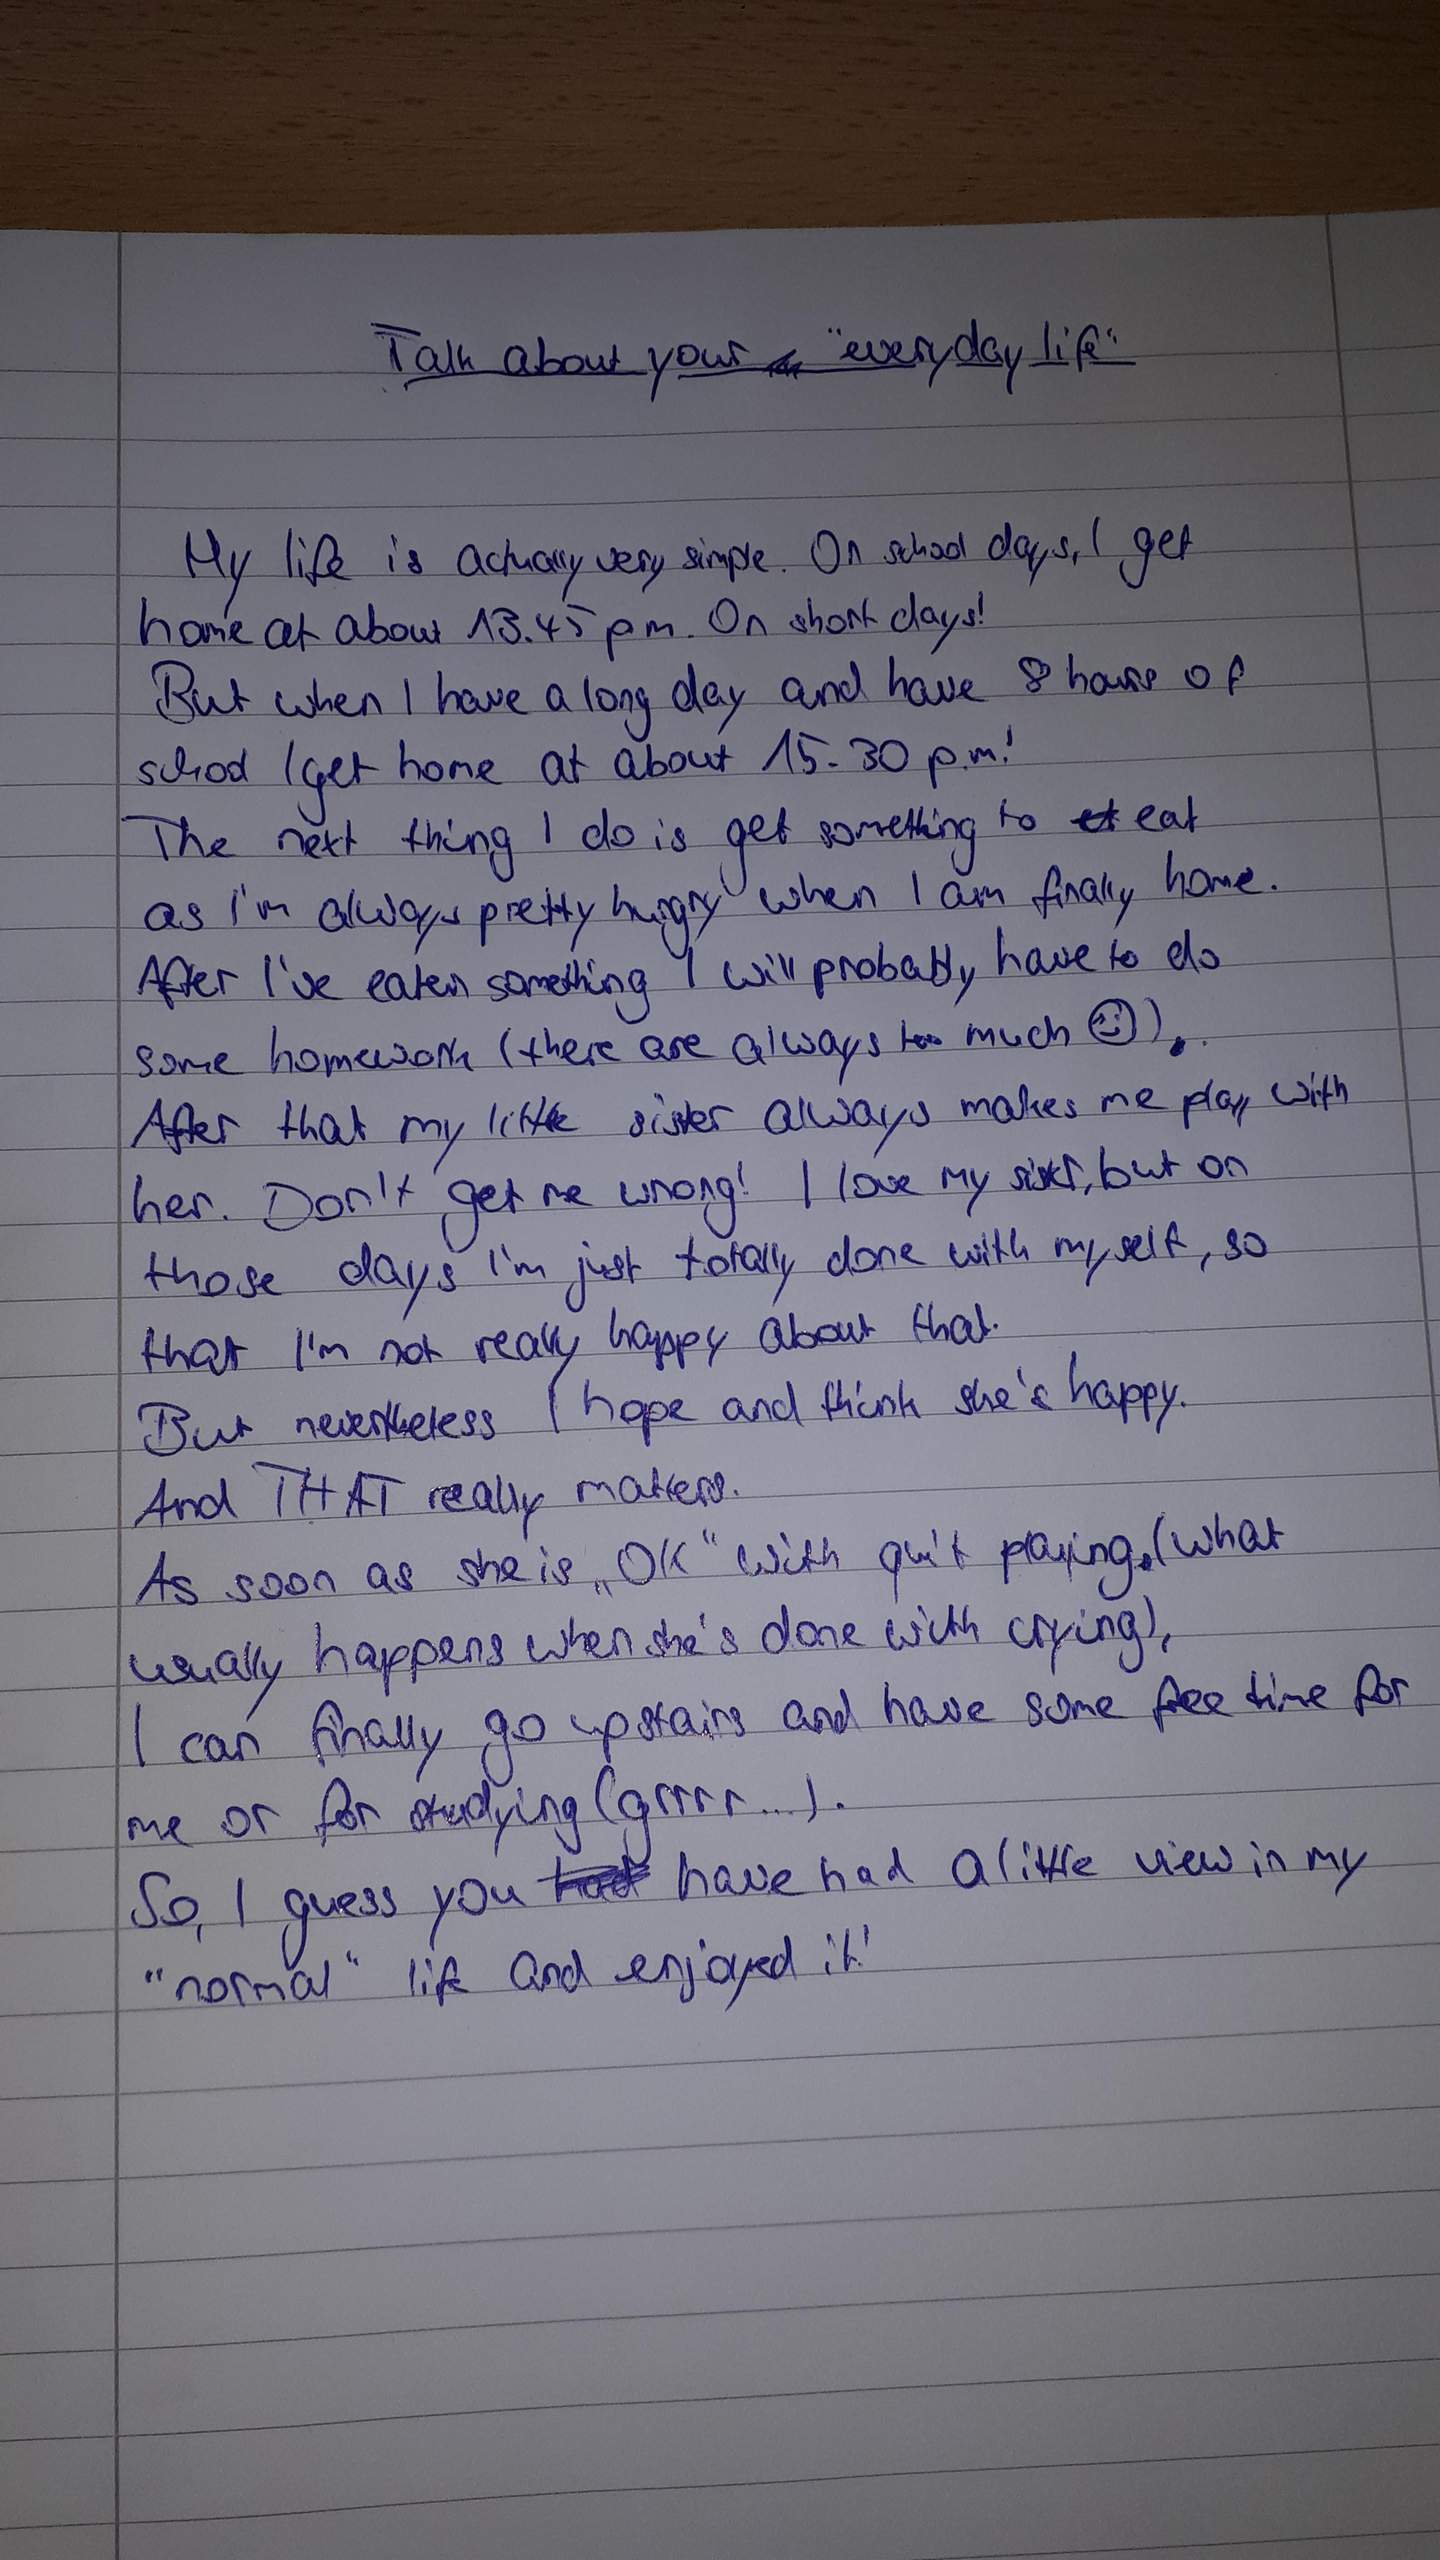 Talk about your "everyday life"
My life is actually very simple. On school days, I get
home at about 13.45 pm. On short days!
But when I have a long day and have 8 hours of
school I get home at about 15.30 p.m!
The next thing I do is get something to eat
as I'm always pretty hungry when I am finally home.
After I've eaten something I will probably have to do
some homework (there are always too much ☺).
After that my little sister always makes me play with
her. Don't get me wrong! I love my sister, but on
those days I'm just totally done with myself, so
that I'm not really happy about that.
But nevertheless I hope and think she's happy.
And THAT really matters.
As soon as she is „OK" with quit playing, (what
usually happens when she's done with crying),
I can finally go upstairs and have some free time for
me or for studying (grrrr...).
So, I guess you have had a little view in my
"normal" life and enjoyed it!